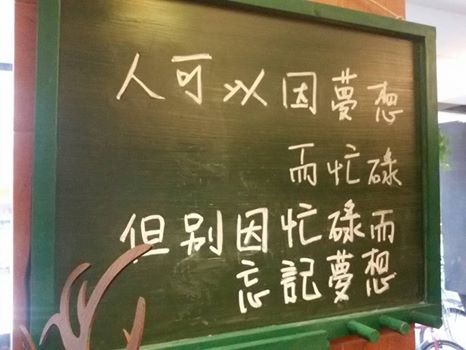 人可以因夢想
而忙碌
但別因忙碌而
忘記夢想